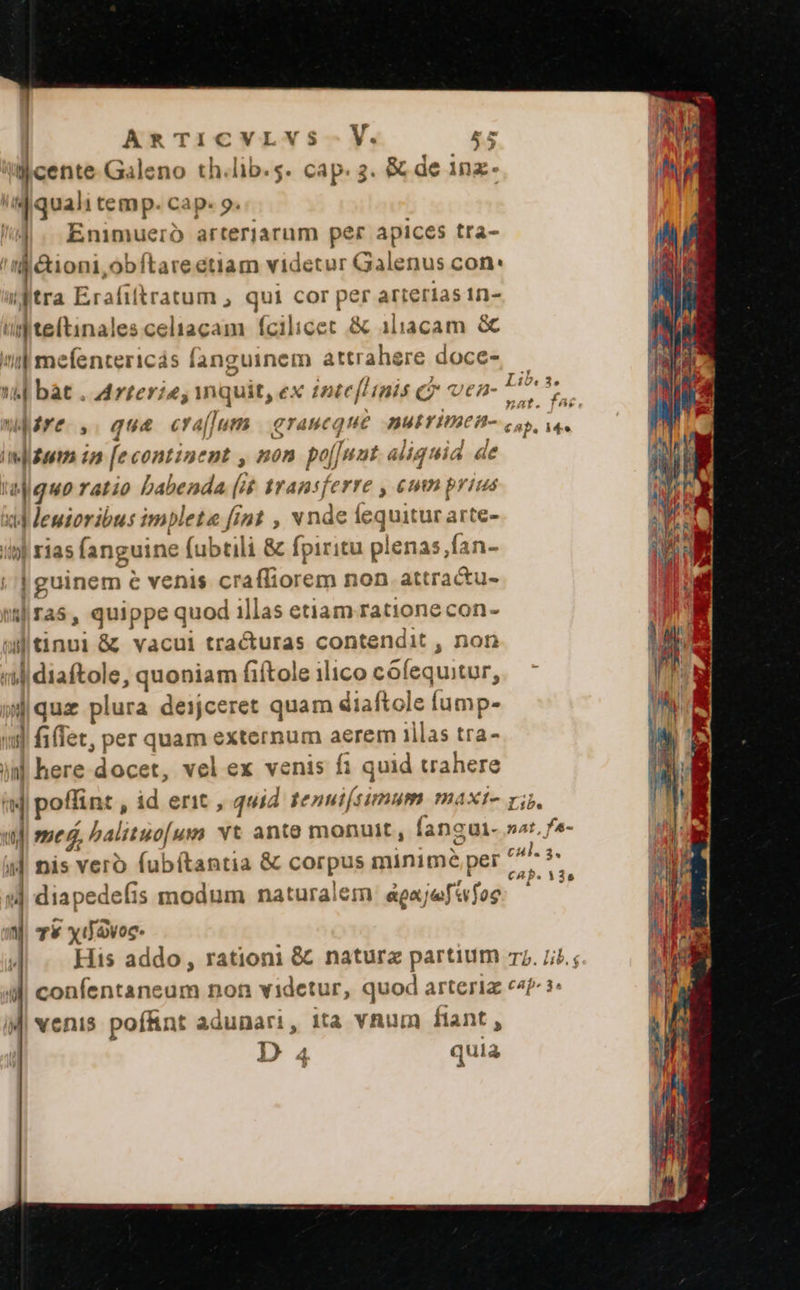 ARTICVLVS V. 55
cente Galeno th.lib.5. cap. 3. & de inæ-
quali temp. cap. 9.
Enimuerò arteriarum per apices tra-
ctioni, obſtare etiam videtur Galenus con-
tra Eraſiſtratum, qui cor per arterias in-
teſtinales celiacam ſcilicet & iliacam &
meſentericás ſanguinem attrahere doce-
bat. Arteriæ, inquit, ex inteſtinis & ven-
tre, quæ craſſum graueque nutrimen-
tum in ſe continent, non poſſunt aliquid de
quo ratio habenda ſit transferre, cum prius
leuioribus impletæ ſint, vnde ſequitur arte-
rias ſanguine ſubtili & ſpiritu plenas, ſan-
guinem è venis craſſiorem non attractu-
ras, quippe quod illas etiam ratione con-
tinui & vacui tracturas contendit, non
diaſtole, quoniam ſiſtole ilico cõſequitur,
quæ plura deijceret quam diaſtole ſump-
ſiſſet, per quam externum aerem illas tra-
here docet, vel ex venis ſi quid trahere
poſſint, id erit, quid tenuiſsimum maxi-
meq́, halituoſum vt ante monuit, ſangui-
nis verò ſubſtantia & corpus minimè per
diapedeſis modum naturalem
τοῦ χιτῶνος.
His addo, rationi & naturæ partium
conſentaneum non videtur, quod arteriæ
venis poſſint adunari, ita vnum fiant,
D 4 quia
Lib. 3.
nat. fac.
cap. 14.
Lib.
nat. fa-
cul. 3.
cap. 13.
Ib. lib. 5.
cap. 3.